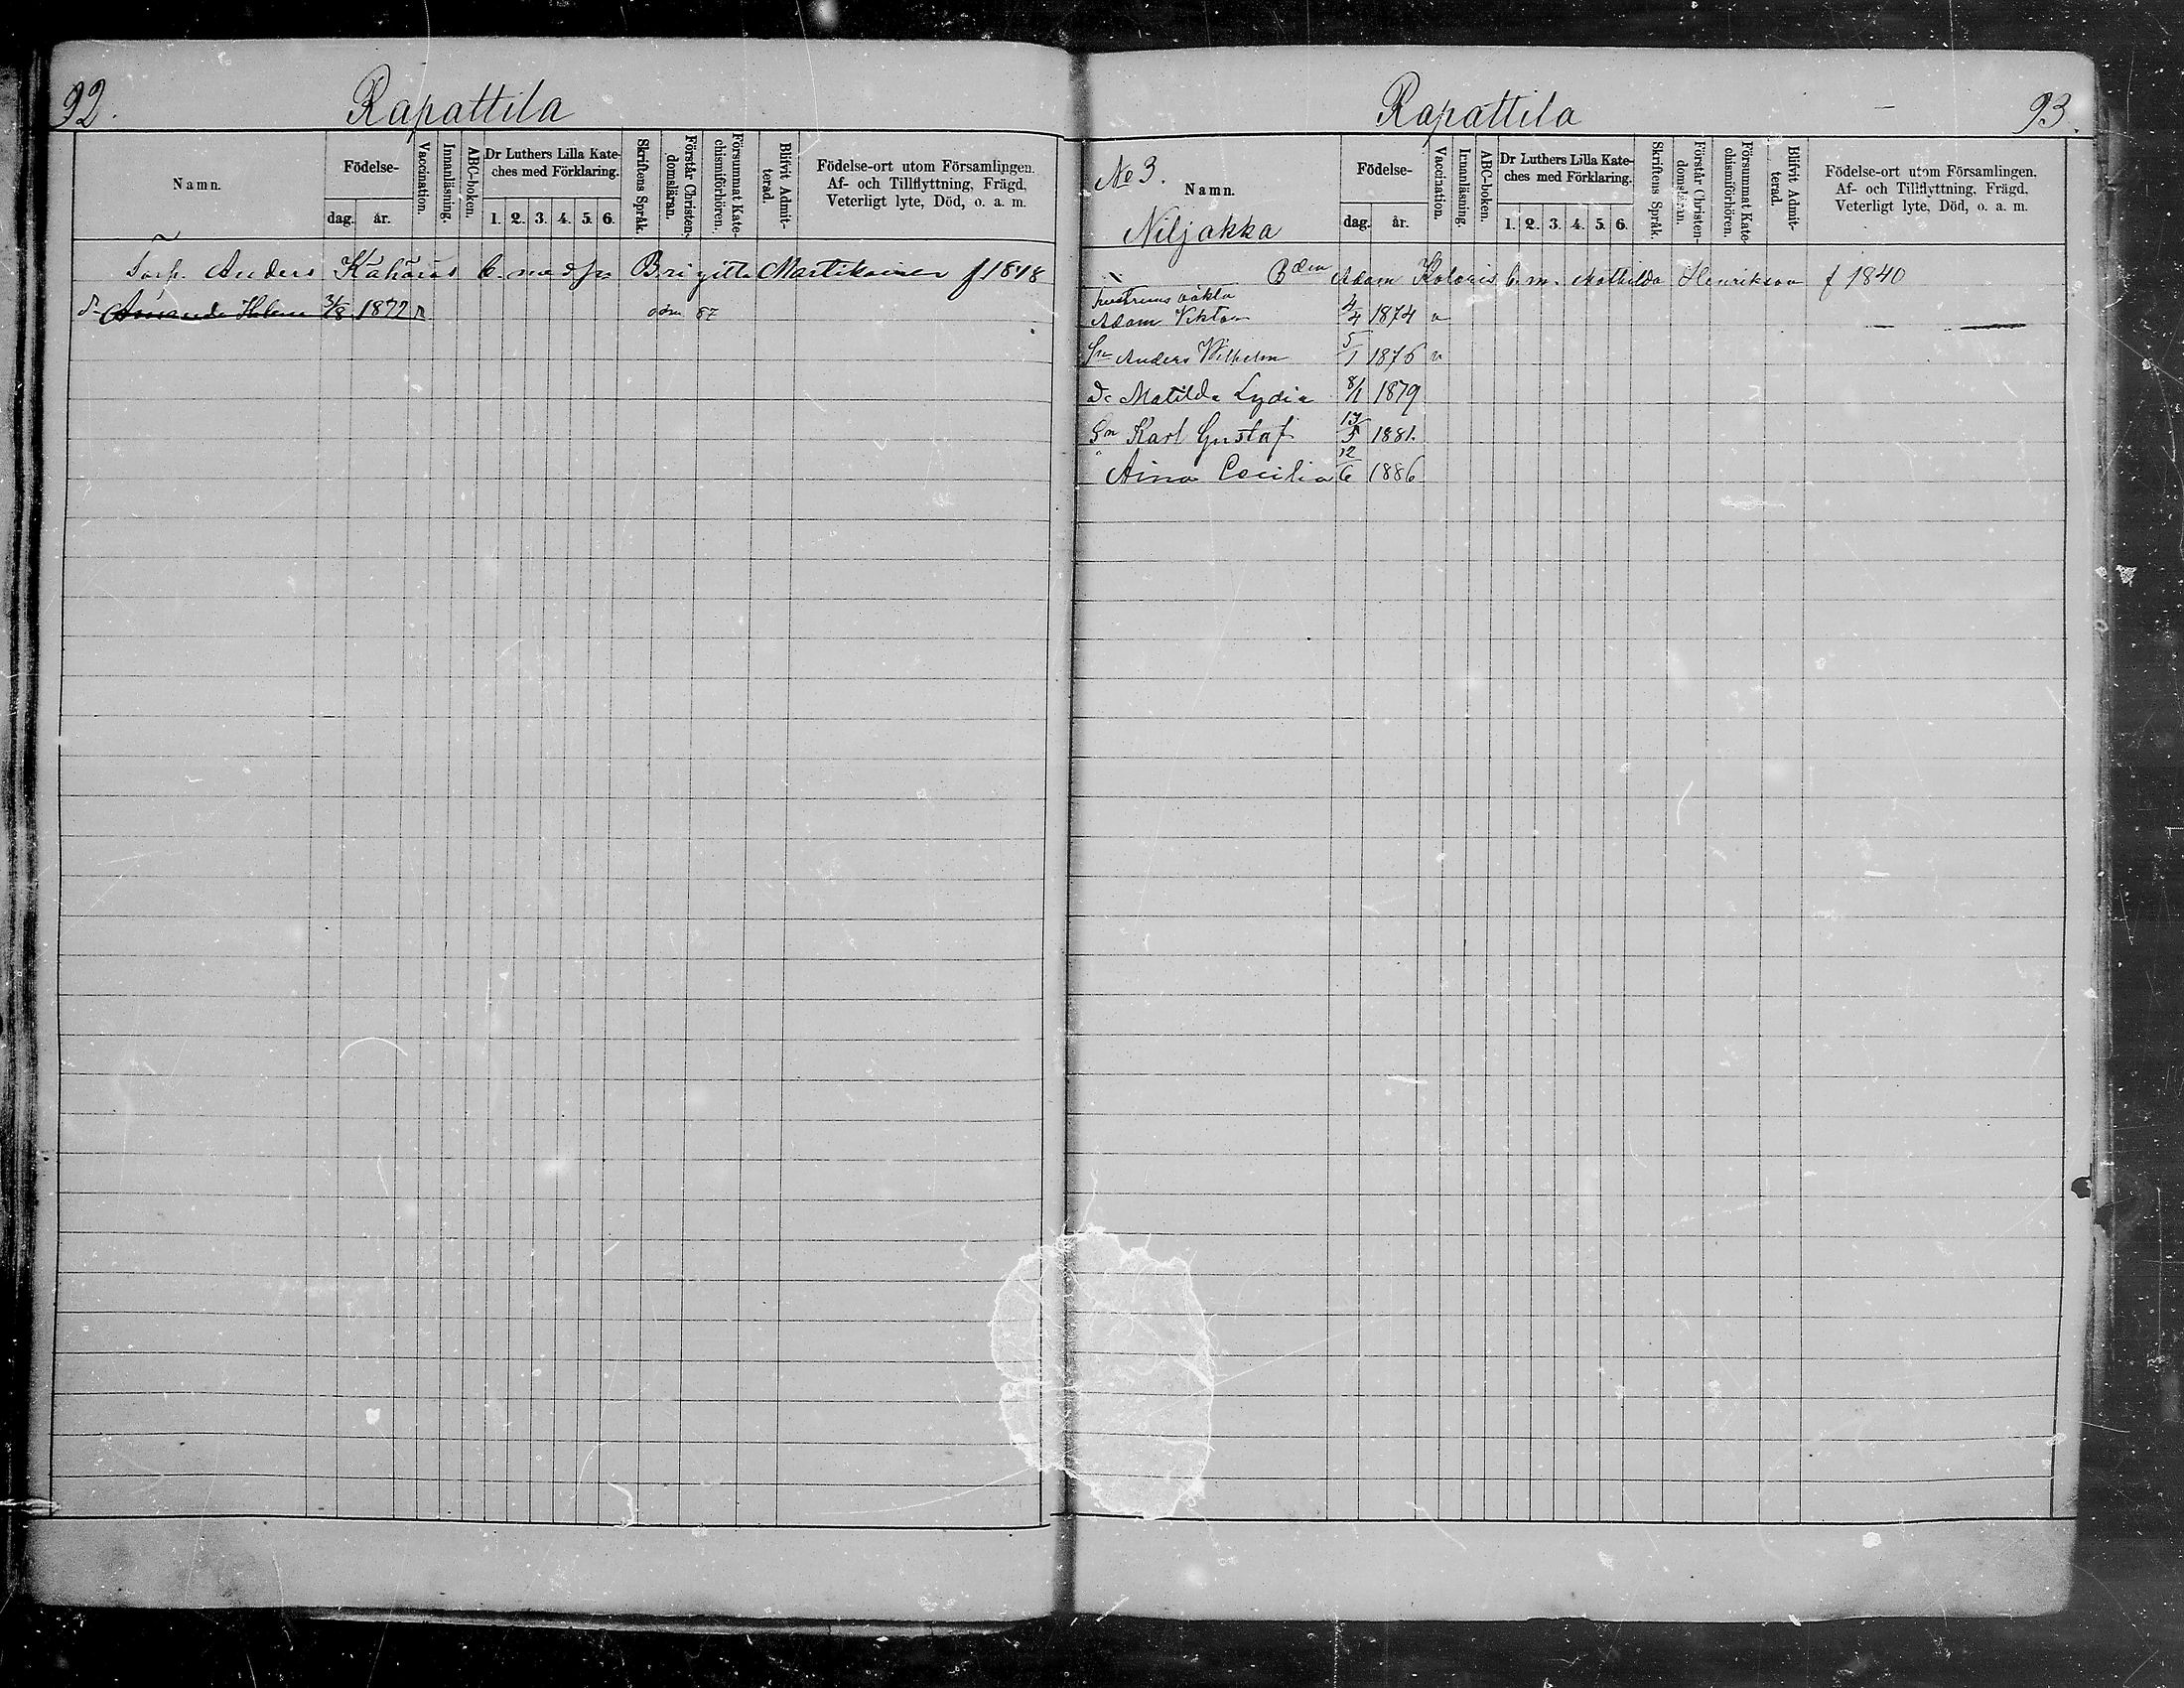 92.
Rapattila
Namn.
Födelse-
dag.
år.
Vaccination.
Innanläsning.
ABC-boken.
Dr Luthers Lilla Kate-
ches med Förklaring.
1. 2. 3. 4. 5. 6.
Skriftens Språk.
Förstår Christen-
domsläran.
Försummat Kate-
chismiförhören.
Blifvit Admit-
terad.
Födelse-ort utom Församlingen.
Af- och Tillflyttning, Frägd,
Veterligt lyte, Död, o. a. m.
Torp. Anders Kähäräs Brigitta Martikainen f 1848
d. Amanda Helena 3/8 1872 v 87
Rapattila
93.
No 3.
Namn.
Niljakka
Födelse-
dag.
år.
Vaccination.
Innanläsning.
ABC-boken.
Dr Luthers Lilla Kate-
ches med Förklaring.
1. 2. 3. 4. 5. 6.
Skriftens Språk.
Förstår Christen-
domsläran.
Försummat Kate-
chismiförhören.
Blifvit Admit-
terad.
Födelse-ort utom Församlingen.
Af- och Tillflyttning, Frägd,
Veterligt lyte, Död, o. a. m.
Bden Adam m. Mathilda Henrikson f 1840
hustruns oäkta
Adam Viktor 4/4 1874 v
Sn Anders Wilhelm 5/1 1876 v
Dr Matilda Lydia 8/1 1879
Sn Karl Gustaf 1881.
" Aina Cecilia 12/6 1886